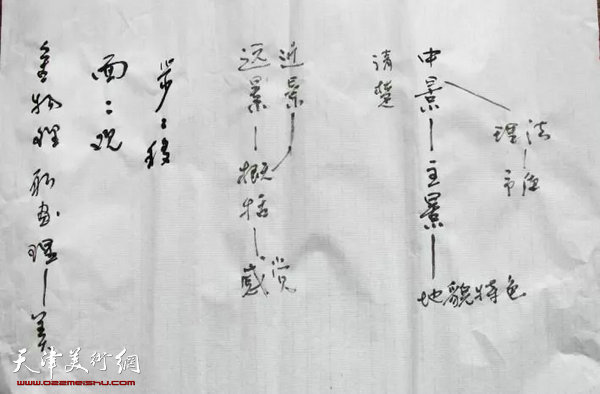 法
理—布位
中景—主景—地貌特色
清楚
近景
远景—概括—感觉
步:移
面:观
舍物理 取画理—美
天津美術網
www.022meishu.com